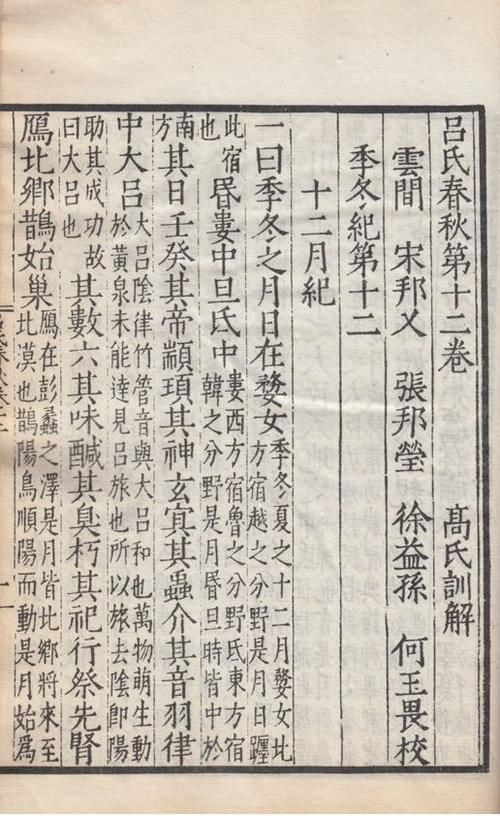 呂氏春秋第十二卷　高氏訓解
雲間　宋邦乂　張邦瑩　徐益孫　何玉畏校
季冬紀第十二
十二月紀
一曰季冬之月日在婺女季冬夏之十二月婺女北方宿越之分野是月日躔
此宿也昏婁中旦氐中婁西方宿魯之分野氐東方宿韓之分野是月昏旦時皆中於
南方其日壬癸其帝顓頊其神玄冥其蟲介其音羽律
中大呂大呂陰律竹管音與大呂和也萬物萌生動於黃泉未能達見呂旅也所以旅去陰卽陽
助其成功故曰大呂也其數六其味鹹其臭朽其祀行祭先腎
鴈北鄉鵲始巢鴈在彭蠡之澤是月皆北鄉將來至北漠也鵲陽鳥順陽而動是月始爲